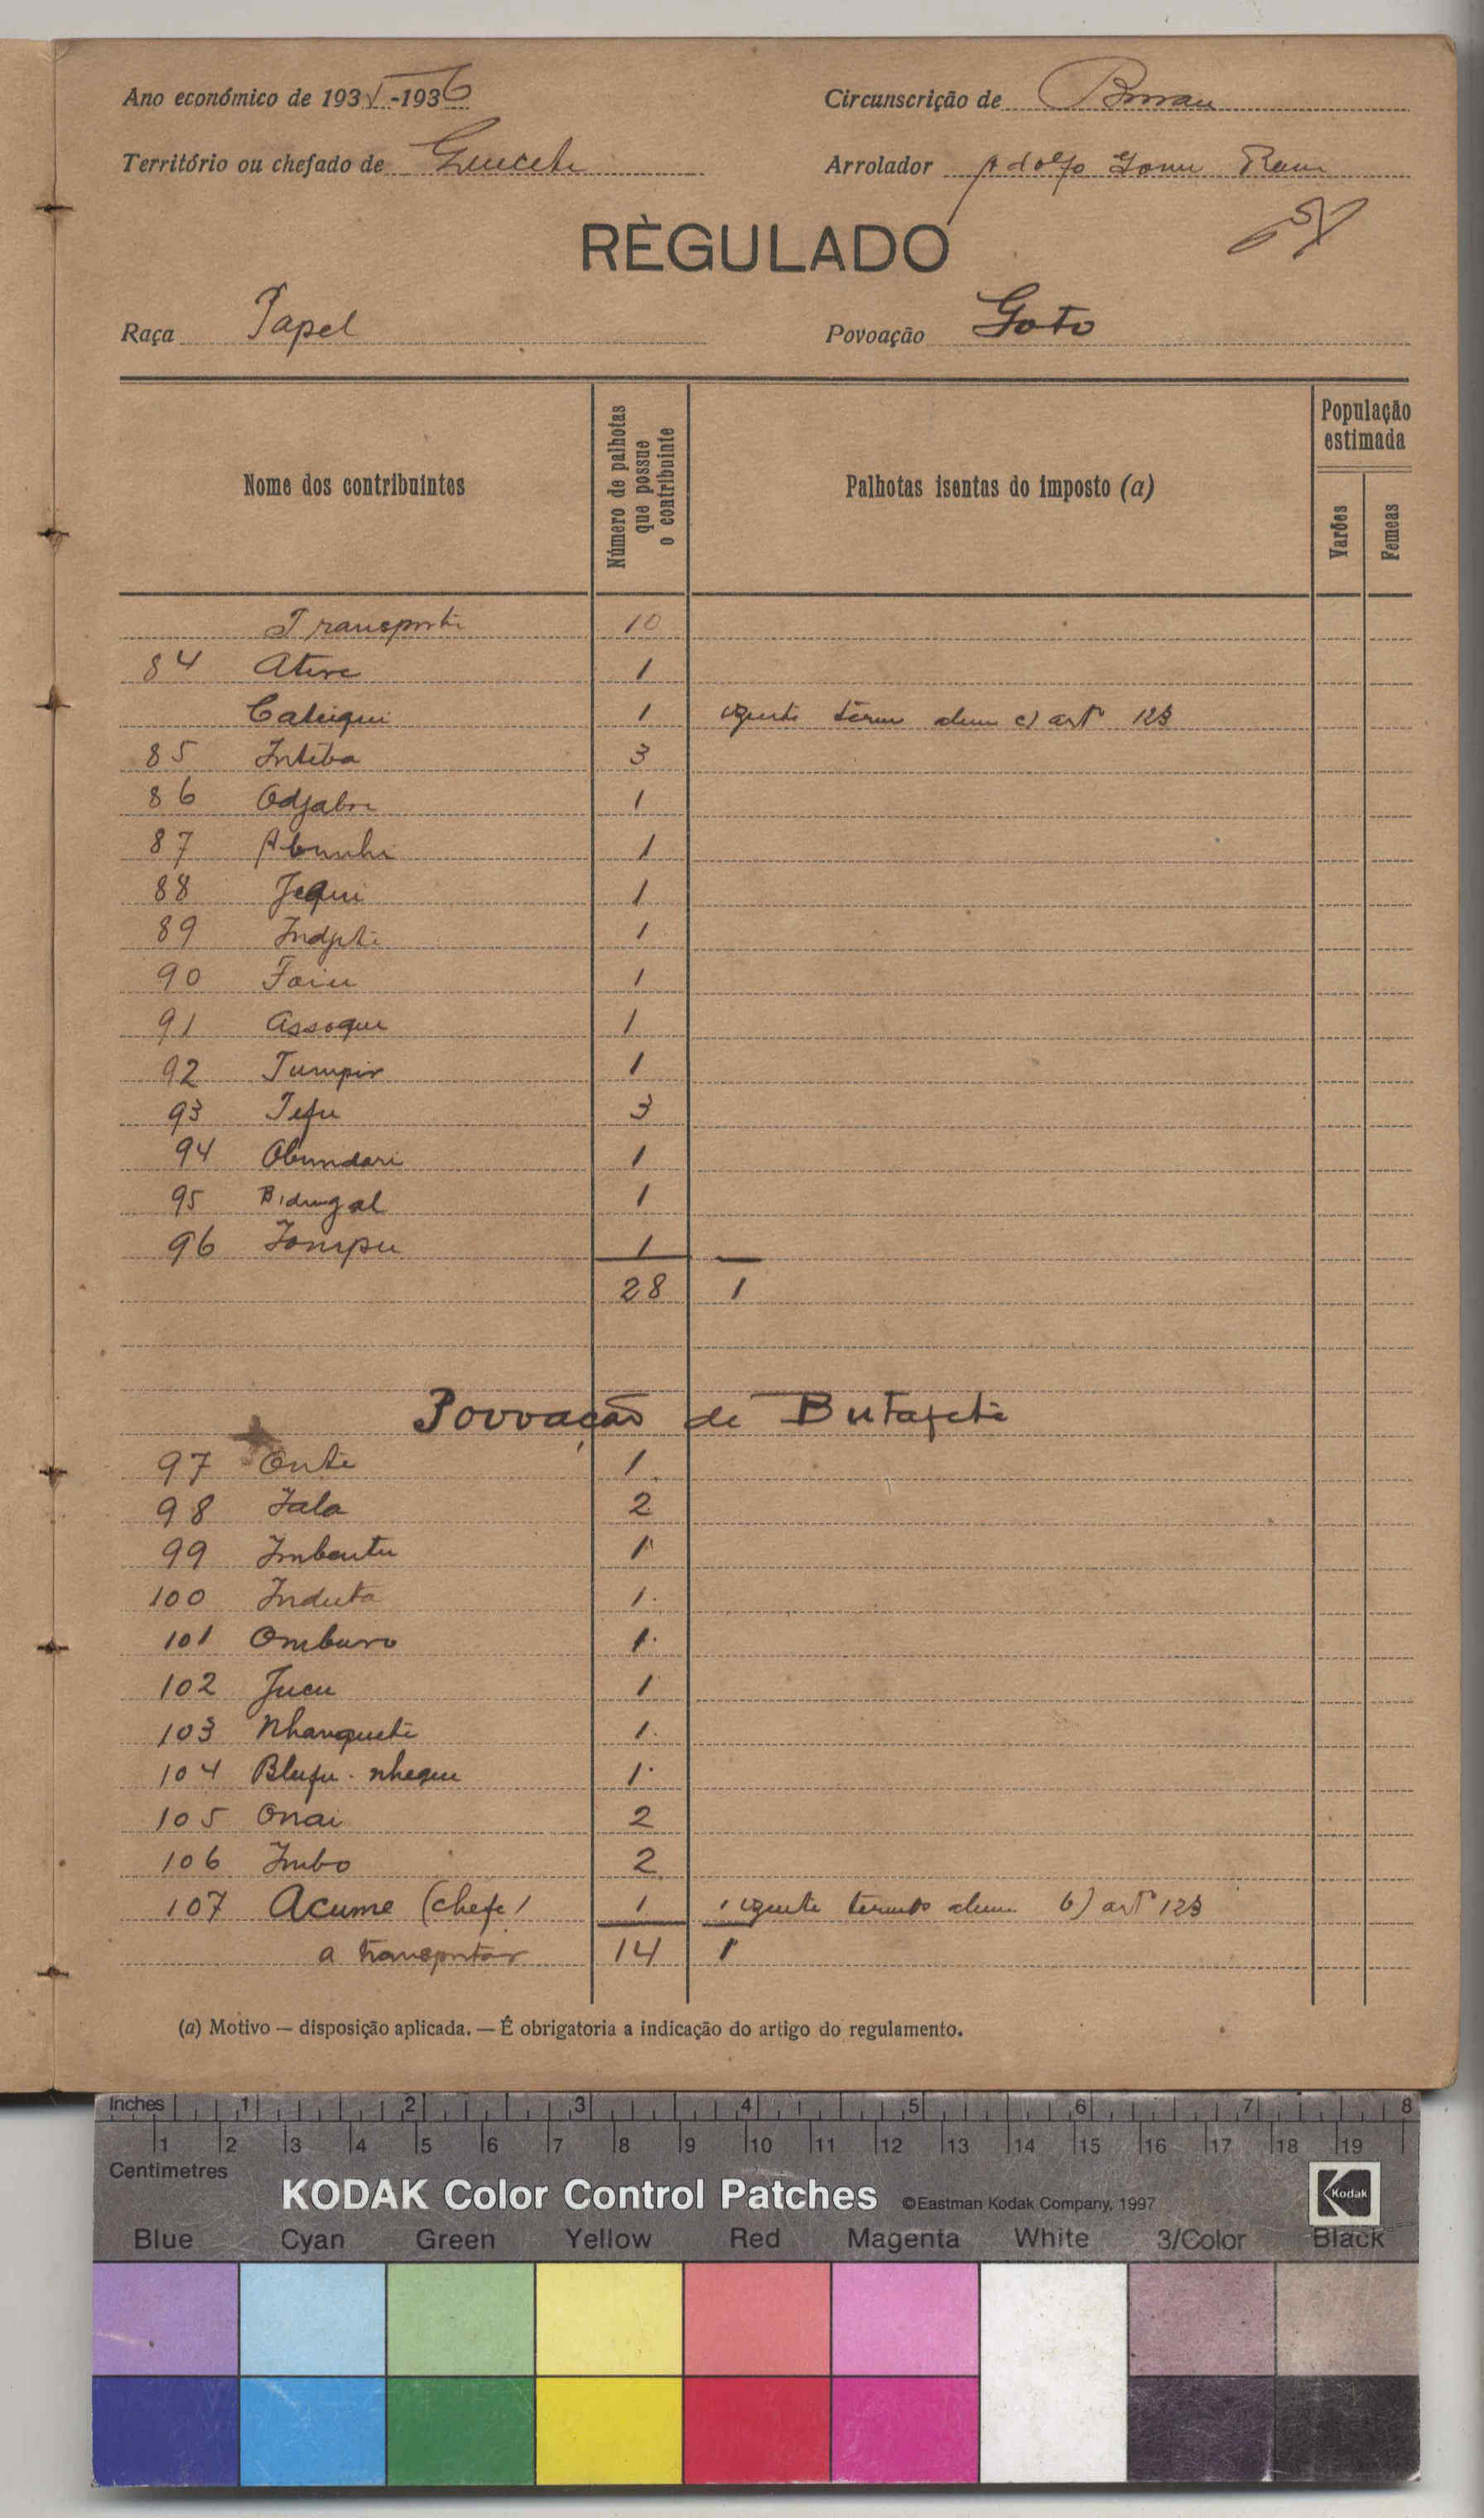 Ano económico de 1935-1936 Circunscrição de
Território ou chefado de Arrolador Adolfo Gomes
RÈGULADO
Raça Papel Povoação Goto
Nome dos contribuintes
Número de palhotas que possue o contribuinte
Palhotas isentas do imposto (a)
População estimada
Varões
Femeas
Transporte 10
84 Atere 1
1 art° 123
85 Intiba 3
86 Odjabre 1
87 1
88 Jequi 1
89 1
90 1
91 Assoque 1
92 Tumpir 1
93 Tefu 3
94 Obundari 1
95 Bidungal 1
96 Tompu 1
28 1
Povoação de Butafete
97 Onte 1
98 Tala 2
99 1
100 Induta 1
101 Omburo 1
102 Jucu 1
103 Nhanquete 1
104 Blufu-nheque 1
105 Onai 2
106 Imbo 2
107 Acume (chefe) 1 1 b) art° 123
a transportar 14 1
(a) Motivo — disposição aplicada. — É obrigatoria a indicação do artigo do regulamento.
Inches 1 2 3 4 5 6 7 8
1 2 3 4 5 6 7 8 9 10 11 12 13 14 15 16 17 18 19
Centimetres
KODAK Color Control Patches ©Eastman Kodak Company, 1997 Kodak
Blue Cyan Green Yellow Red Magenta White 3/Color Black